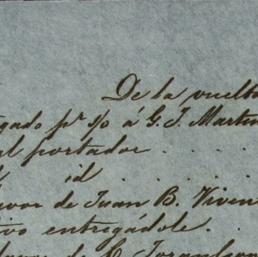 De la vuelta
gado pr s/o á G. J. Martin
al portador . . . .
id . . . .
vor de Juan B. Viven
ivo entregádole.
de